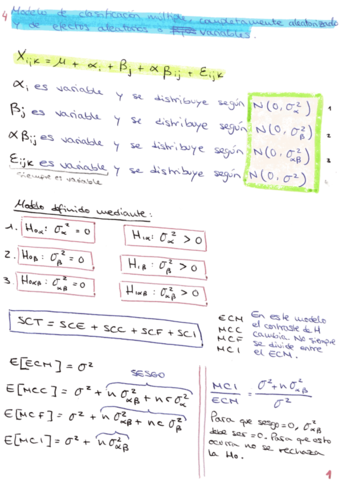 4 Modelo de clasificación múltiple, completamente aleatorizado
y de efectos aleatorios = variables.
Xijk = μ + αi + βj + αβij = εijk
αi es variable y se distribuye según N(0, σ²α) 1
βj es variable y se distribuye según N(0, σ²β) 2
αβij es variable y se distribuye según N(0, σ²αβ) 3
εijk es variable y se distribuye según N(0, σ²)
siempre es variable
Modelo definido mediante:
1. H0α: σ²α = 0 H1α: σ²α > 0
2. H0β: σ²β = 0 H1β: σ²β > 0
3. H0αβ: σ²αβ = 0 H1αβ: σ²αβ > 0
SCT = SCE + SCC + SCF + SCI
ECM
MCC
MCF
MCI
En este modelo
el contraste de H
cambia. No siempre
se divide entre
el ECM.
E[ECM] = σ²
SESGO
E[MCC] = σ² + nσ²αβ + nrσ²α
E[MCF] = σ² + nσ²αβ + ncσ²β
E[MCI] = σ² + nσ²αβ
MCI / ECM = σ² + nσ²αβ / σ²
Para que sesgo = 0, σ²αβ
debe ser = 0. Para que esto
ocurra no se rechaza
la H0.
1